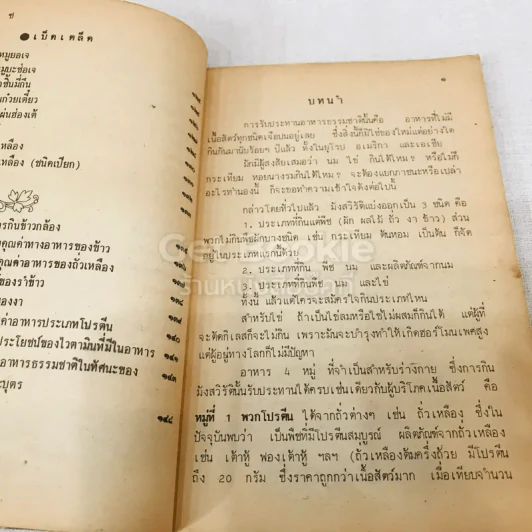 ช
●เบ็ดเตล็ด
หมูยอเจ
หมูบะช่อเจ
ชิ้นมี่กึน
นก๋วยเตี๋ยว
แผ่นฮ่องเต้
เหลือง
เหลือง (ชนิดเปียก)
กินข้าวกล้อง
คุณค่าทางอาหารของข้าว
คุณค่าอาหารของถั่วเหลือง
ของรำข้าว
ของงา
ค่าอาหารประเภทโปรตีน
ประโยชน์ของไวตามินที่มีในอาหาร
อาหารธรรมชาติในทัศนะของ
ะบุตร
๑๔๐
๑๔๓
๑๔๔
๑
บทนำ
การรับประทานอาหารธรรมชาตินั้นคือ อาหารที่ไม่มี
เนื้อสัตว์ทุกชนิดเจือปนอยู่เลย ซึ่งสิ่งนี้ก็มิใช่ของใหม่แต่อย่างใด
กินกันมานับร้อยๆ ปีแล้ว ทั้งในยุโรป อเมริกา และเอเซีย
มักมีผู้สงสัยเสมอว่า นม ไข่ กินได้ไหม? หรือไม่ก็
กระเทียม หอยนางรมกินได้ไหม? จะต้องแยกภาชนะหรือเปล่า
อะไรทำนองนี้ ก็จะขอทำความเข้าใจดังต่อไปนี้
กล่าวโดยทั่วไปแล้ว มังสวิรัติแบ่งออกเป็น ๓ ชนิด คือ
1. ประเภทที่กินแต่พืช (ผัก ผลไม้ ถั่ว งา ข้าว) ส่วน
พวกไม่กินพืชผักบางชนิด เช่น กระเทียม ต้นหอม เป็นต้น ก็จัด
อยู่ในประเภทแรกนี้ด้วย
2. ประเภทที่กิน พืช นม และผลิตภัณฑ์จากนม
๓. ประเภทที่กิน พืช นม และ ไข่
ทั้งนี้ แล้วแต่ใครจะสมัครใจกินประเภทไหน
สำหรับไข่ ถ้าเป็นไข่ลมหรือไข่ไม่ผสมก็กินได้ แต่ผู้ที่
จะตัดกิเลสก็จะไม่กิน เพราะมันจะบำรุงทำให้เกิดฮอร์โมนเพศสูง
แต่ผู้อยู่ทางโลกก็ไม่มีปัญหา
อาหาร 4 หมู่ ที่จำเป็นสำหรับร่างกาย ซึ่งการกิน
มังสวิรัตินั้นรับประทานได้ครบเช่นเดียวกับผู้บริโภคเนื้อสัตว์ คือ
หมู่ที่ 1 พวกโปรตีน ได้จากถั่วต่างๆ เช่น ถั่วเหลือง ซึ่งใน
ปัจจุบันพบว่า เป็นพืชที่มีโปรตีนสมบูรณ์ ผลิตภัณฑ์จากถั่วเหลือง
เช่น เต้าหู้ ฟองเต้าหู้ ฯลฯ (ถั่วเหลืองต้มครึ่งถ้วย มีโปรตีน
ถึง 20 กรัม ซึ่งราคาถูกกว่าเนื้อสัตว์มาก เมื่อเทียบจำนวน